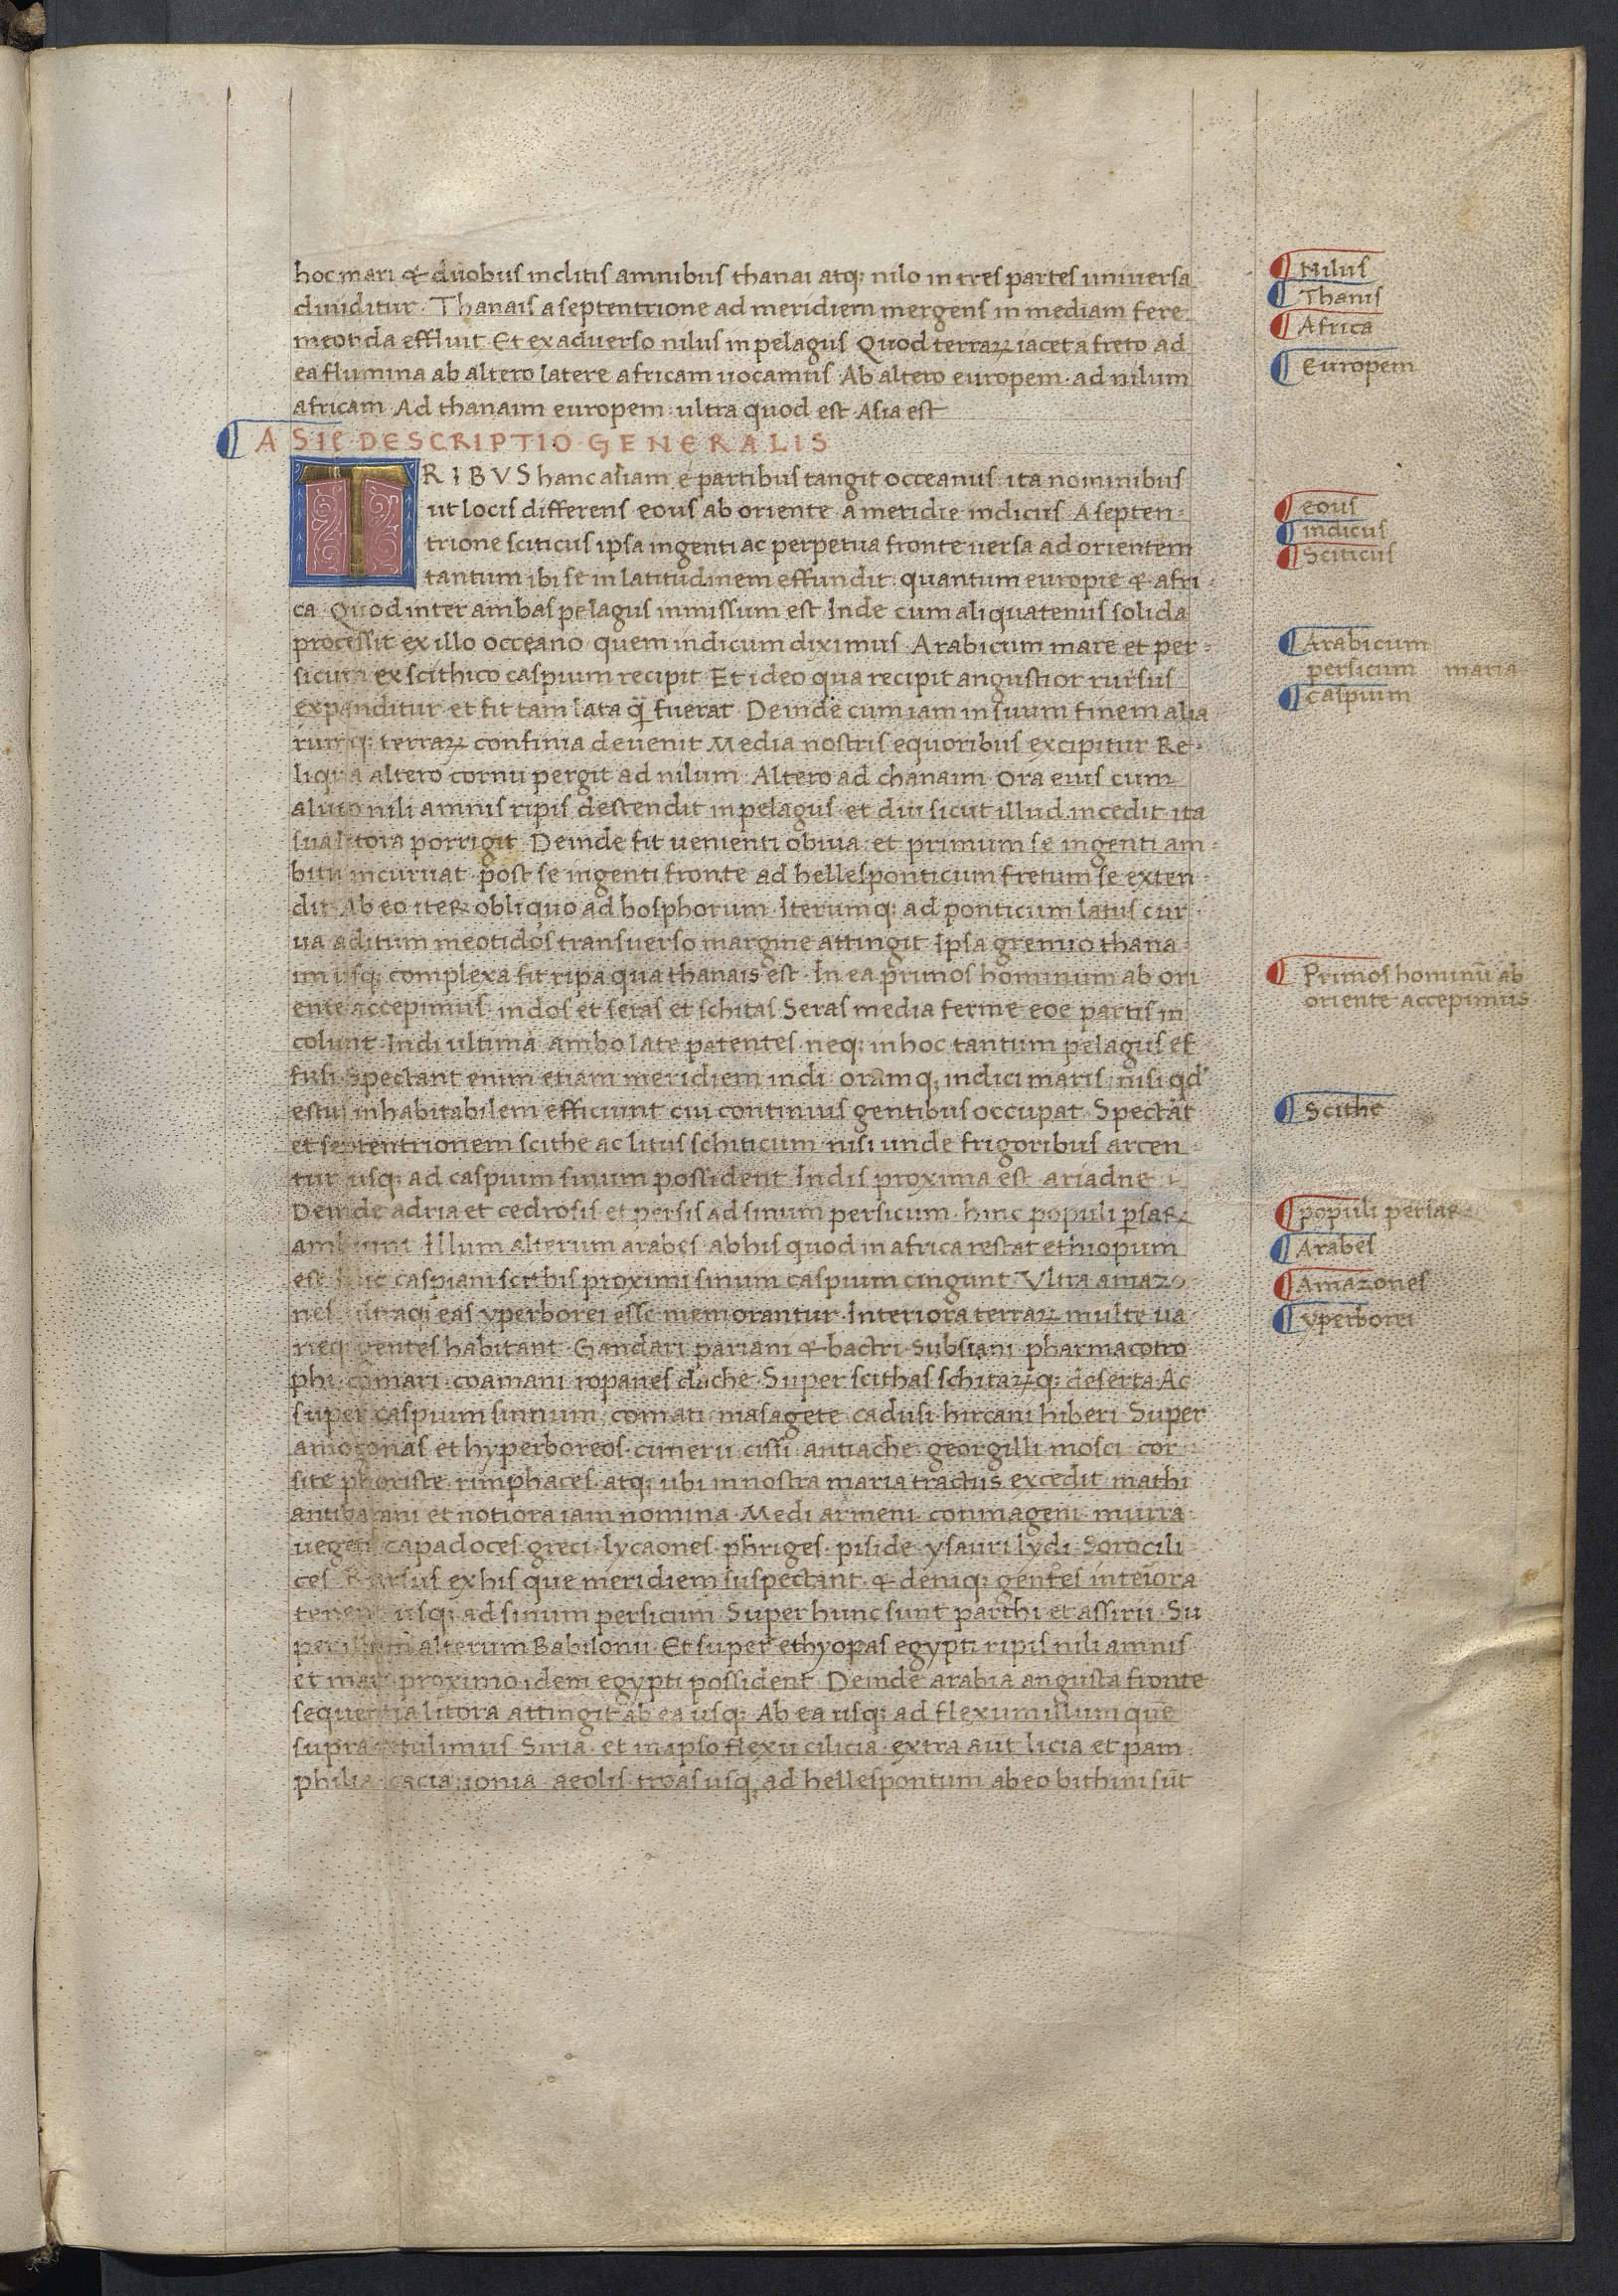 hoc mari & duobus inclitis amnibus thanai atq; nilo in tres partes uniuersa
diuiditur. Thanais a septentrione ad meridiem mergens in mediam fere
meotida effluit Et ex aduerso nilus in pelagus Quod terraꝝ iacet a freto ad
ea flumina ab altero latere africam uocamus Ab altero europem. ad nilum
africam Ad thanaim europem. ultra quod est Asia est
ASIE DESCRIPTIO GENERALIS
TRIBVS hanc asiam e partibus tangit occeanus. ita nominibus
ut locis differens eous ab oriente a meridie indicus A septen-
trione sciticus ipsa ingenti ac perpetua fronte uersa ad orientem
tantum ibi se in latitudinem effundit. quantum europie & afri-
ca Quod inter ambas pelagus inmissum est Inde cum aliquatenus solida
processit ex illo occeano quem indicum diximus Arabicum mare et per-
sicum ex scithico caspium recipit Et ideo qua recipit angustior rursus
expanditur et fit tam lata q̃ fuerat. Deinde cum iam in suum finem alia
rumq; terraꝝ confinia deuenit Media nostris equoribus excipitur Re-
liqua altero cornu pergit ad nilum. Altero ad chanaim Ora eius cum
alueo nili amnis ripis destendit in pelagus et diu sicut illud incedit ita
sua litora porrigit Deinde fit uenienti obuia. et primum se ingenti am-
bitu incuruat post se ingenti fronte ad hellesponticum fretum se exten-
dit Ab eo iteꝝ obliquo ad bosphorum. Iterumq; ad ponticum latus cur-
ua aditum meotidos transuerso margine attingit Ipsa gremio thana
im usq; complexa fit ripa qua thanais est. In ea primos hominum ab ori
ente accepimus. indos et seras et schitas Seras media ferme eoe partis in
colunt Indi ultima ambo late patentes neq; in hoc tantum pelagus ef
fusi Spectant enim etiam meridiem indi oramq; indici maris. nisi qd
estus inhabitabilem efficiunt cui continuis gentibus occupat Spectat
et septentrionem scithe ac litus schiticum nisi unde frigoribus arcen-
tur usq; ad caspium sinum possident Indis proxima est ariadne
Deinde adria et cedrosis et persis ad sinum persicum. hinc populi psaꝝ
ambiunt Illum alterum arabes ab his quod in africa restat ethiopum
est caspiani scithis proximi sinum caspium cingunt Vltra amazo
nes ultraq; eas yperborei esse memorantur Interiora terraꝝ multe ua
rieq; gentes habitant Gandari pariani & bactri Subsiani pharmacotro
phi comari coamani ropanes dache Super scithas schitaꝝq; deserta Ac
super caspium sinnum comati masagete cadusi hircani hiberi Super
amozonas et hyperboreos cimerii cissi antiache georgilli mosci cor-
site phoriste rimphaces atq; ubi in nostra maria tractus excedit mathi
antibarani et notiora iam nomina Medi armeni conmageni murra
uegeti capadoces greci lycaones phriges piside ysauri lydi Sorocili
ces Rursus ex his que meridiem suspectant & deniq; gentes inteiora
tenent usq; ad sinum persicum Super hunc sunt parthi et assirii Su
per illum alterum Babilonii Et super ethyopas egypti ripis nili amnis
et mari proximo idem egypti possident Deinde arabia angusta fronte
sequentia litora attingit ab ea usq; Ab ea usq; ad flexum illum que
supra extulimus Siria et in ipso flexu cilicia extra aut licia et pam-
philia cacia ionia aeolis troas usq; ad hellespontum ab eo bithini sūt
Nilus
Thanis
Africa
Europem
eous
indicus
Sciticus
Arabicum
persicum maria
caspium
Primos hominū ab
oriente accepimus
Scithe
populi persaꝝ
Arabes
Amazones
yperborei